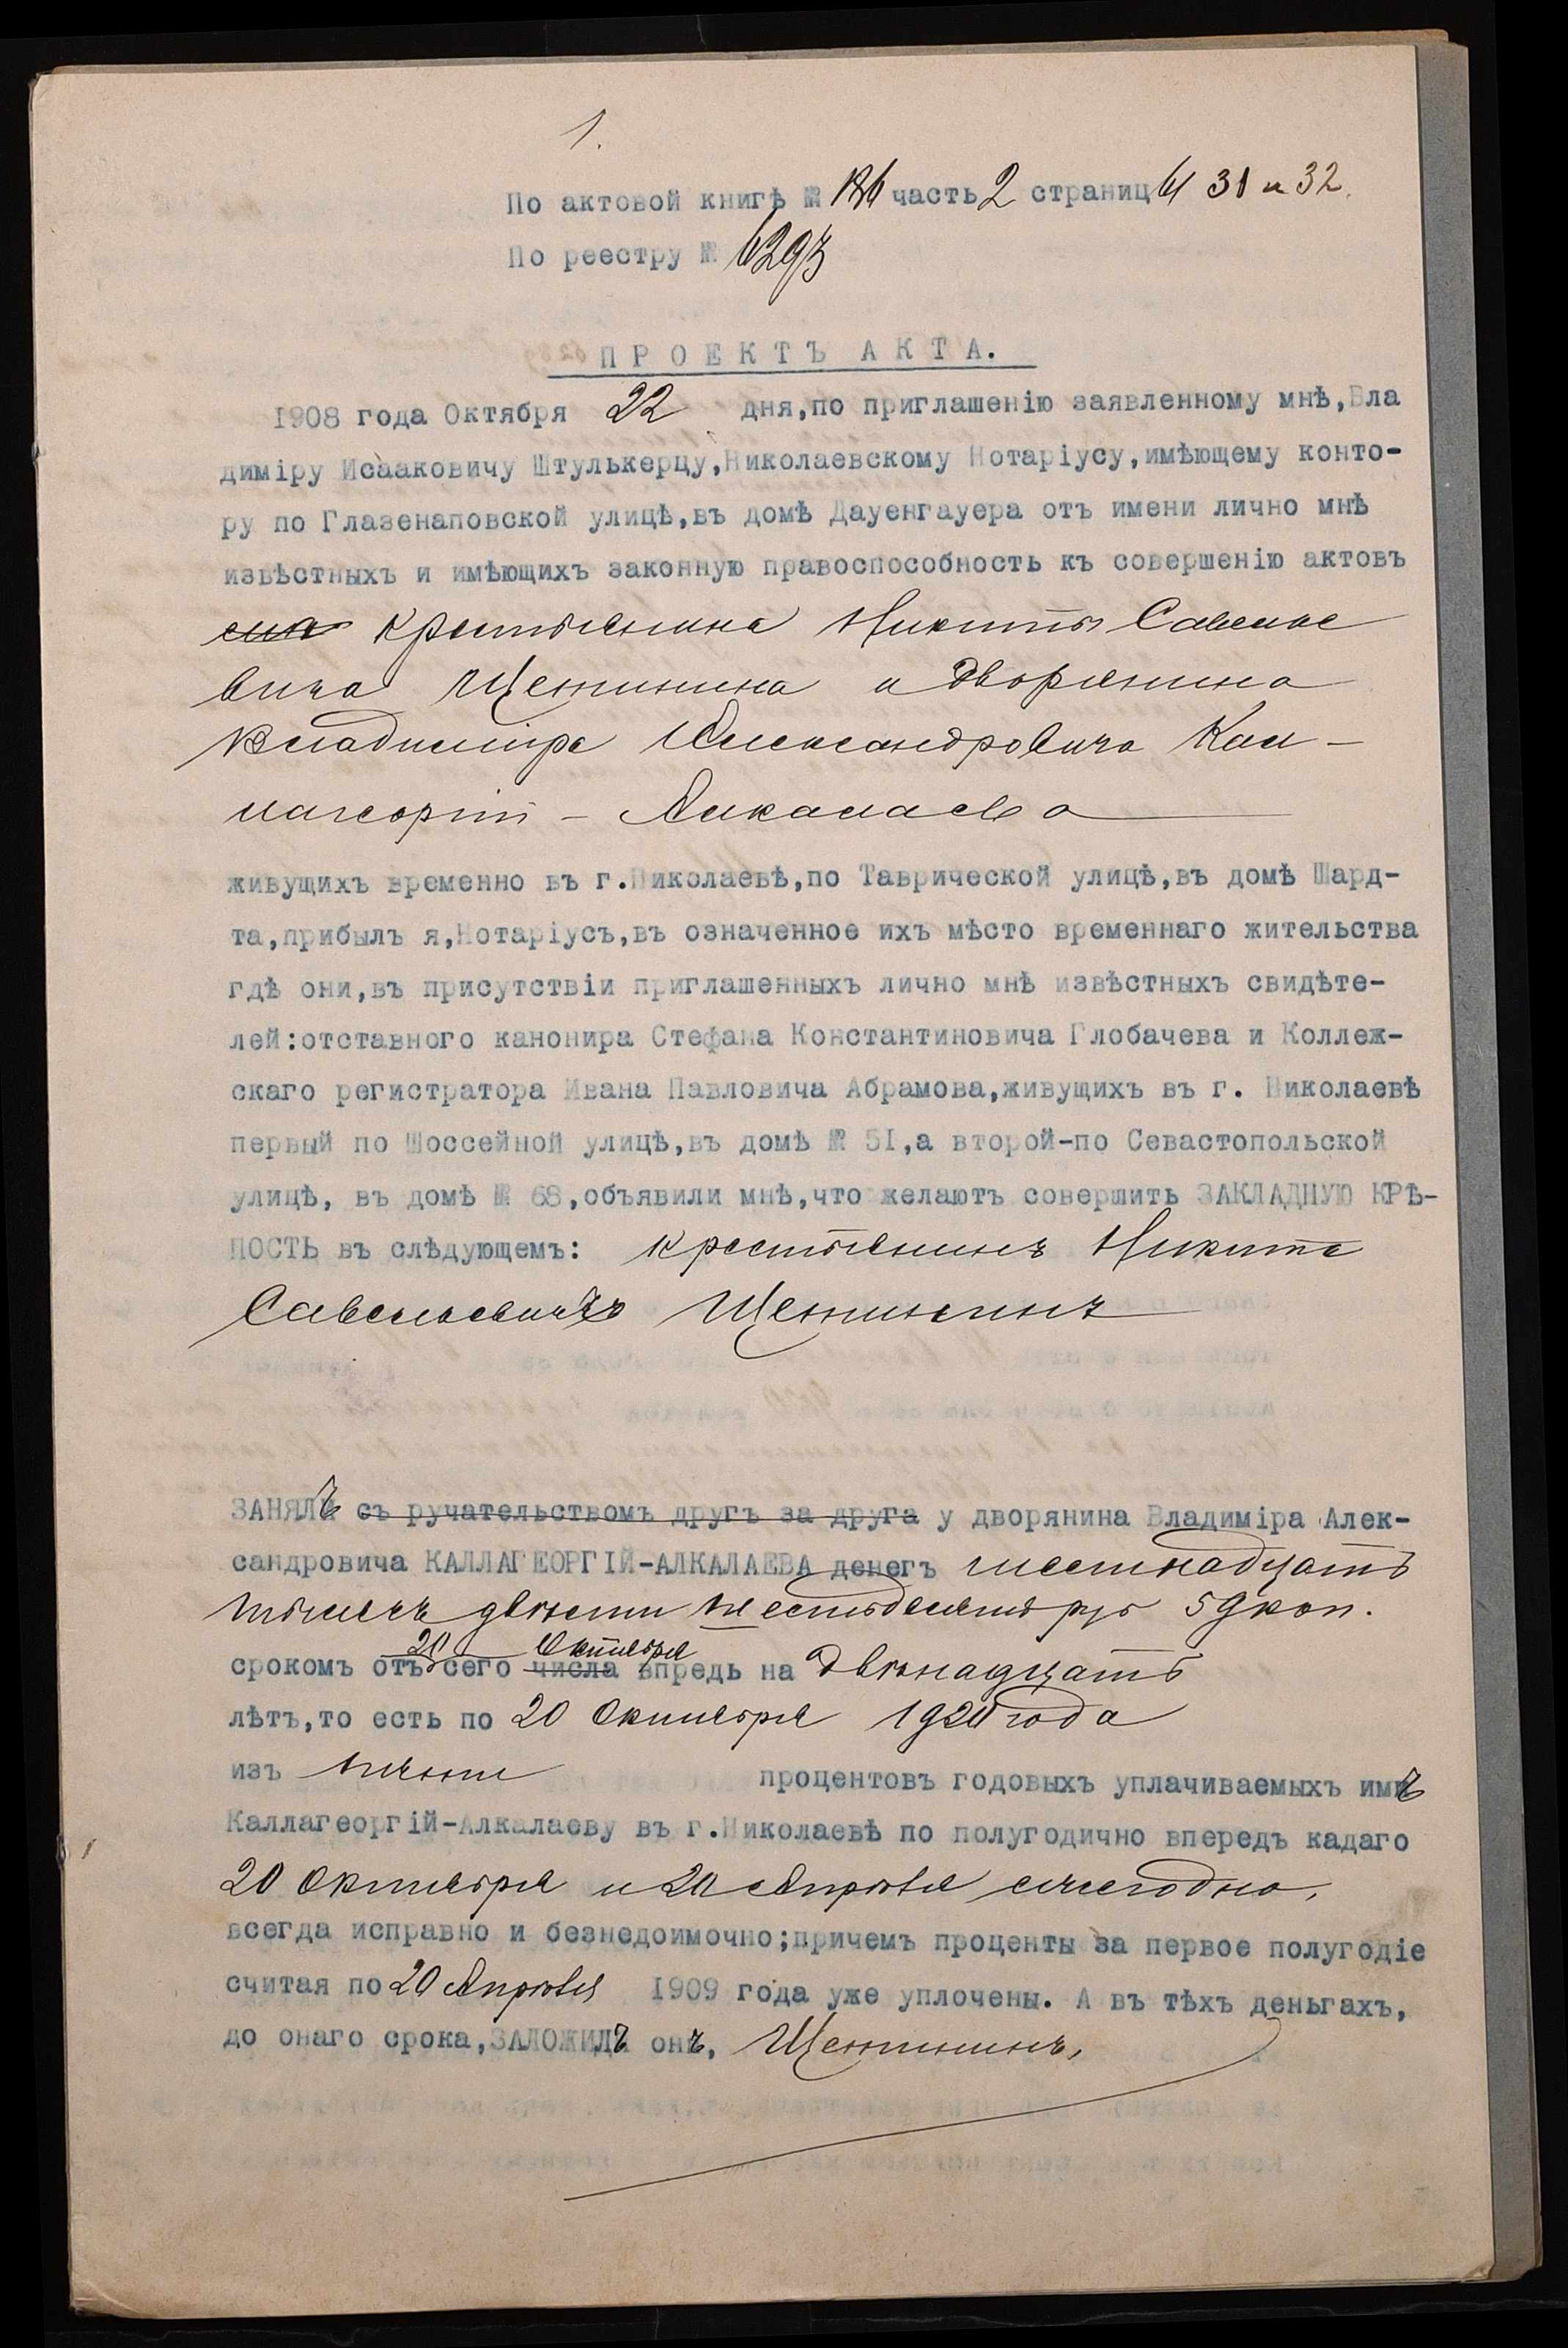 1.
По актовой книгѣ № 186 часть 2 страницы 31 и 32.
По реестру № 6293
ПРОЕКТЪ АКТА.
1908 года Октября 22 дня,по приглашенію заявленному мнѣ,Вла
диміру Исааковичу Штулькерцу,Николаевскому Нотаріусу,имѣющему конто-
ру по Глазенаповской улицѣ,въ домѣ Дауенгауера отъ имени лично мнѣ
извѣстныхъ и имѣющихъ законную правоспособность къ совершенію актовъ
крестьянина Никиты Савелье
вича Щетинина и дворянина
Владиміра Александровича Кал-
лагеоргій - Алкалаева
живущихъ временно въ г.Николаевѣ,по Таврической улицѣ,въ домѣ Шард-
та,прибылъ я,Нотаріусъ,въ означенное ихъ мѣсто временнаго жительства
гдѣ они,въ присутствіи приглашенныхъ лично мнѣ извѣстныхъ свидѣте-
лей:отставного канонира Стефана Константиновича Глобачева и Коллеж-
скаго регистратора Ивана Павловича Абрамова,живущихъ въ г. Николаевѣ
первый по Шоссейной улицѣ,въ домѣ № 51,а второй-по Севастопольской
улицѣ, въ домѣ № 68,объявили мнѣ,что желаютъ совершить ЗАКЛАДНУЮ КРѢ-
ПОСТЬ въ слѣдующемъ: крестьянинъ Никита
Савельевичъ Щетининъ
ЗАНЯЛЪ съ ручательствомъ другъ за друга у дворянина Владиміра Алек-
сандровича КАЛЛАГЕОРГІЙ-АЛКАЛАЕВА денегъ шестнадцать
тысячъ двѣсти шестьдесятъ руб 59 коп.
20 Октября
срокомъ отъ сего числа впредь на двѣнадцать
лѣтъ,то есть по 20 Октября 1920 года
изъ пяти процентовъ годовыхъ уплачиваемыхъ имъ
Каллагеоргій-Алкалаеву въ г.Николаевѣ по полугодично впередъ кадаго
20 Октября и 20 Апрѣля ежегодно,
всегда исправно и безнедоимочно;причемъ проценты за первое полугодіе
считая по 20 Апрѣля 1909 года уже уплочены. А въ тѣхъ деньгахъ,
до онаго срока,ЗАЛОЖИЛЪ онъ, Щетининъ,